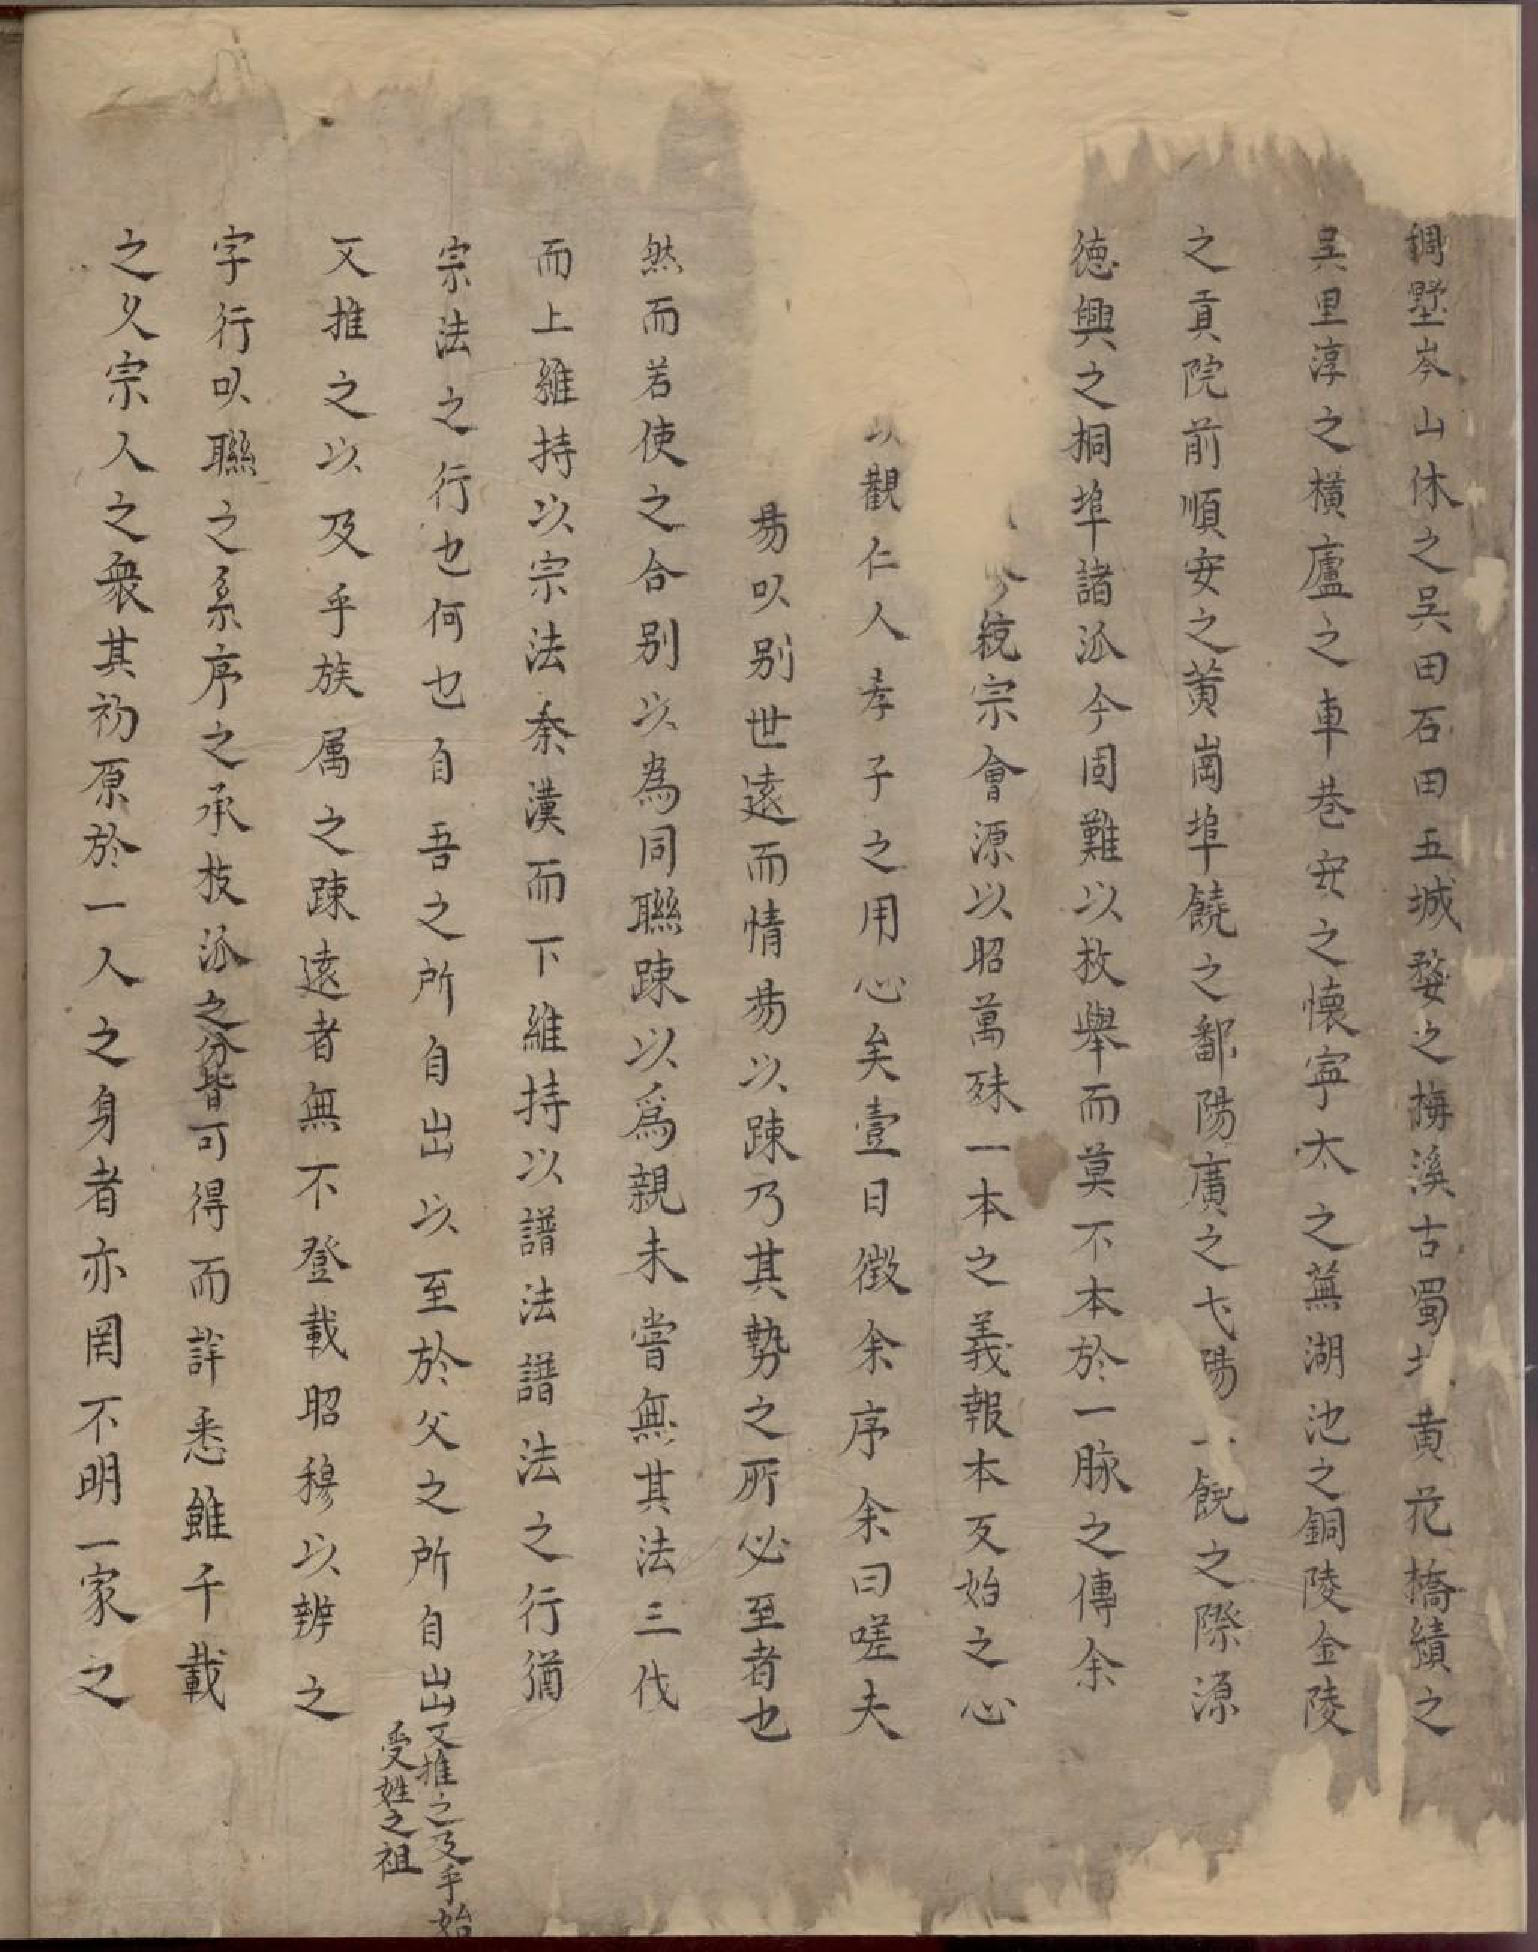 稠墅岑山休之吳田石田五城婺之梅溪古蜀北黄花橋績之
吳里淳之橫廬之車巷安之懷寧太之蕪湖池之銅陵金陵
之貢院前順安之黄崗埠饒之鄱陽廣之弋陽饒之際源
德興之桐埠諸派今固難以枚舉而莫不本於一脉之傳余
統宗會源以昭萬殊一本之義報本反始之心
以觀仁人孝子之用心矣壹日徵余序余曰嗟夫
易以别世遠而情易以踈乃其勢之所必至者也
然而若使之合别以為同聯踈以爲親未嘗無其法三代
而上維持以宗法秦漢而下維持以譜法譜法之行猶
宗法之行也何也自吾之所自出以至於父之所自出又推之及乎始
受姓之祖
又推之以及乎族属之踈遠者無不登載昭穆以辨之
字行以聯之系序之承枝派之分皆可得而詳悉雖千載
之久宗人之衆其初原於一人之身者亦罔不明一家之